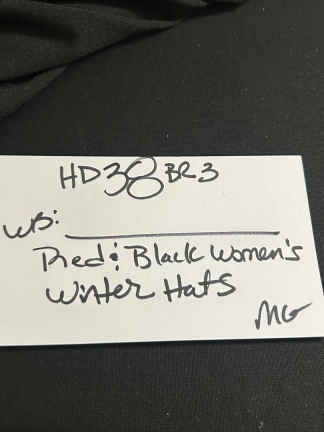 HD38BR3
WB:
Red & Black Women's
Winter Hats
MG